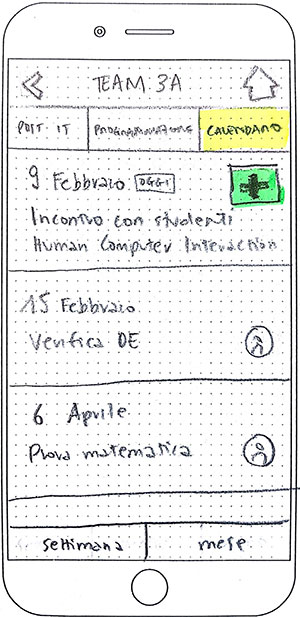 TEAM 3A
POST IT
PROGRAMMAZIONE
CALENDARIO
9 Febbraio OGGI
Incontro con studenti
Human Computer Interaction
15 Febbraio
Verifica DE
6 Aprile
Prova matematica
settimana
mese